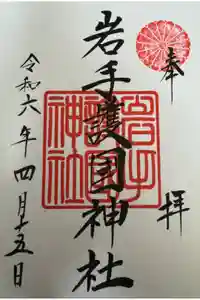 奉拝
岩手護国神社
岩手護国神社
令和六年四月十五日